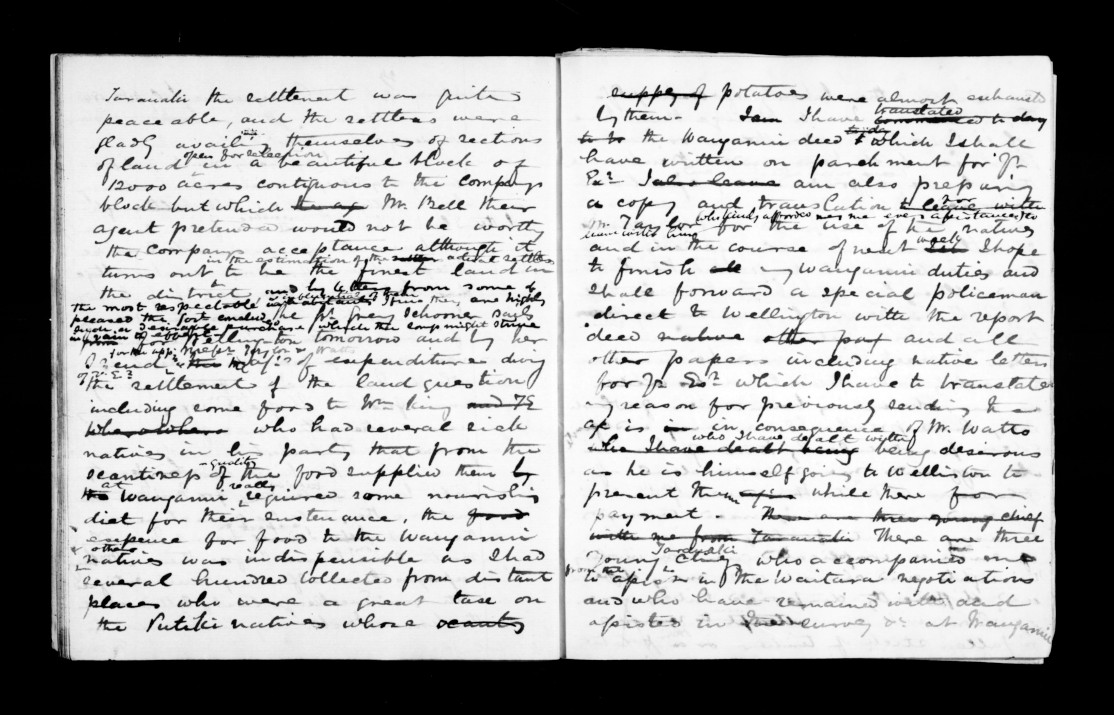 Taranaki the settlement was quite
peaceable, and the settlers were
gladly availing themselves of sections
open for selection
of land in a beautiful block of
12000 acres contiguous to the Companys
block but which they Mr Bell their
agent pretends would not be worthy
the Companys acceptance although it
in the estimation of the settlers
turns out to be the finest land in
the district and by letters from some of
the most respectable inhabitants I find they are highly
pleased the Govt
such a desirable purchase which the comp might
for Wellington tomorrow and by her
I send the of expenditure during
the settlement of the land question
including some food to Wm King and TE
Wherowhero who had several sick
natives in his party that from the
quality
scantiness of the food supplied them by
at really
the Wanganui required some nourishing
diet for their sustenance, the food
expence for food to the Wanganui
other
natives was indispensible as I had
several hundred collected from distant
places who were a great tax on
the Putiki natives whose scanty
supply of potatoes were almost exhausted
translated
by them. I have to day
to the Wanganui deed which I shall
have written on parchment for Yr
Exy I also leave am also preparing
a copy and translation to leave with
who kindly affords me every assistance
Mr Taylor for the use of the natives
leave with
and in the course of next week I hope
to finish all my Wanganui duties and
shall forward a special policeman
direct to Wellington with the report
deed native other pap and all
other papers including native letters
for Yr Exy which I have to translate
my reason for previously sending the
is in consequence of Mr. Watts
who I have dealt with
who I have dealt being being desirous
as he is himself going to Wellington to
present them while there for
payment. There are three young chief
with me from Taranaki There are three
Taranaki
young chiefs who accompanied me
from
to assist in the Waitara negotiations
and who have remained with and
assisted in survey &c at Wanganui